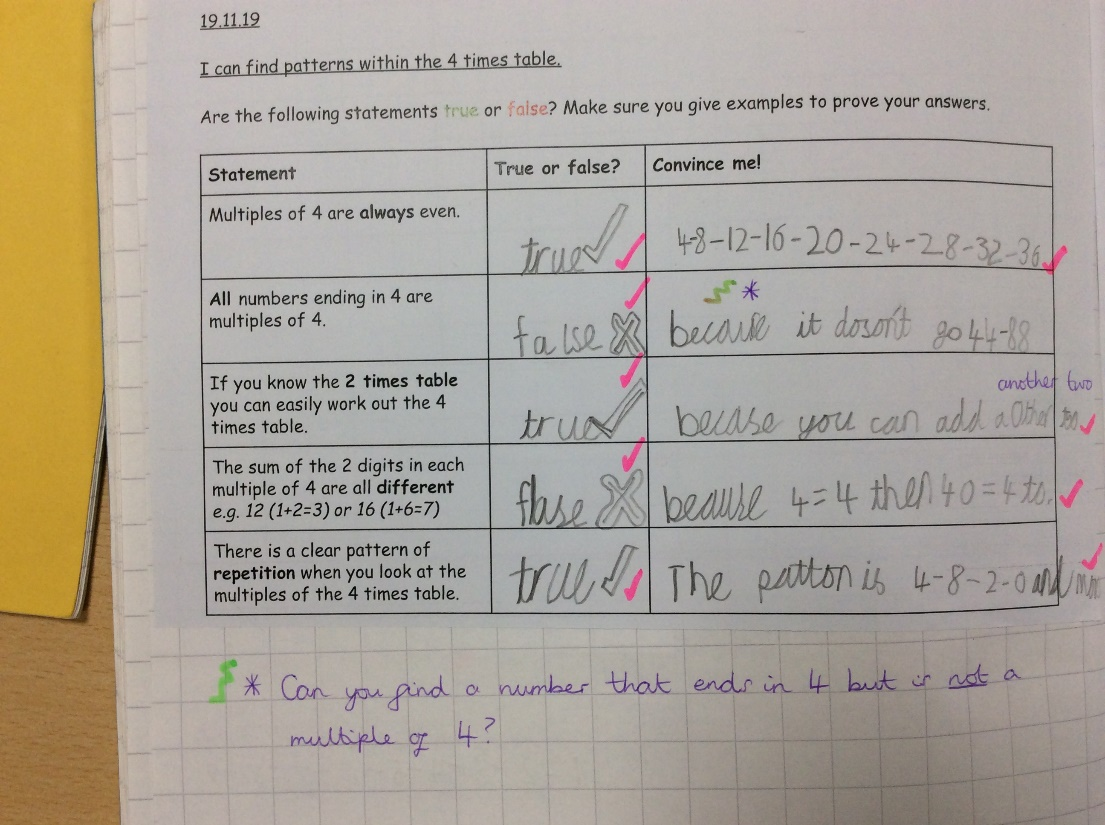 19.11.19
I can find patterns within the 4 times table.
Are the following statements true or false? Make sure you give examples to prove your answers.
Statement True or false? Convince me!
Multiples of 4 are always even.
true 4-8-12-16-20-24-28-32-36
All numbers ending in 4 are
multiples of 4.
false because it doson't go 44-88
If you know the 2 times table
you can easily work out the 4
times table.
another two
true becase you can add a Other
The sum of the 2 digits in each
multiple of 4 are all different
e.g. 12 (1+2=3) or 16 (1+6=7)
flase 4=4 then 40=4 to.
There is a clear pattern of
repetition when you look at the
multiples of the 4 times table.
true The patton is 4-8-2-0 and
* Can you find a number that ends in 4 but is not a
multiple of 4?